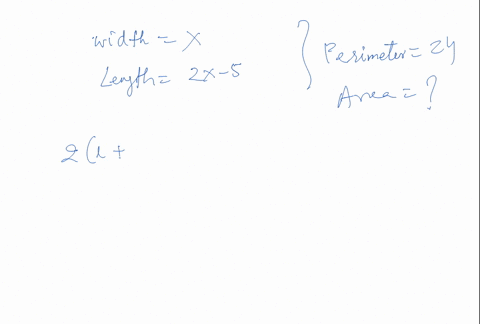 width = x
Length = 2x-5
Perimeter = 24
Area = ?
2(l +